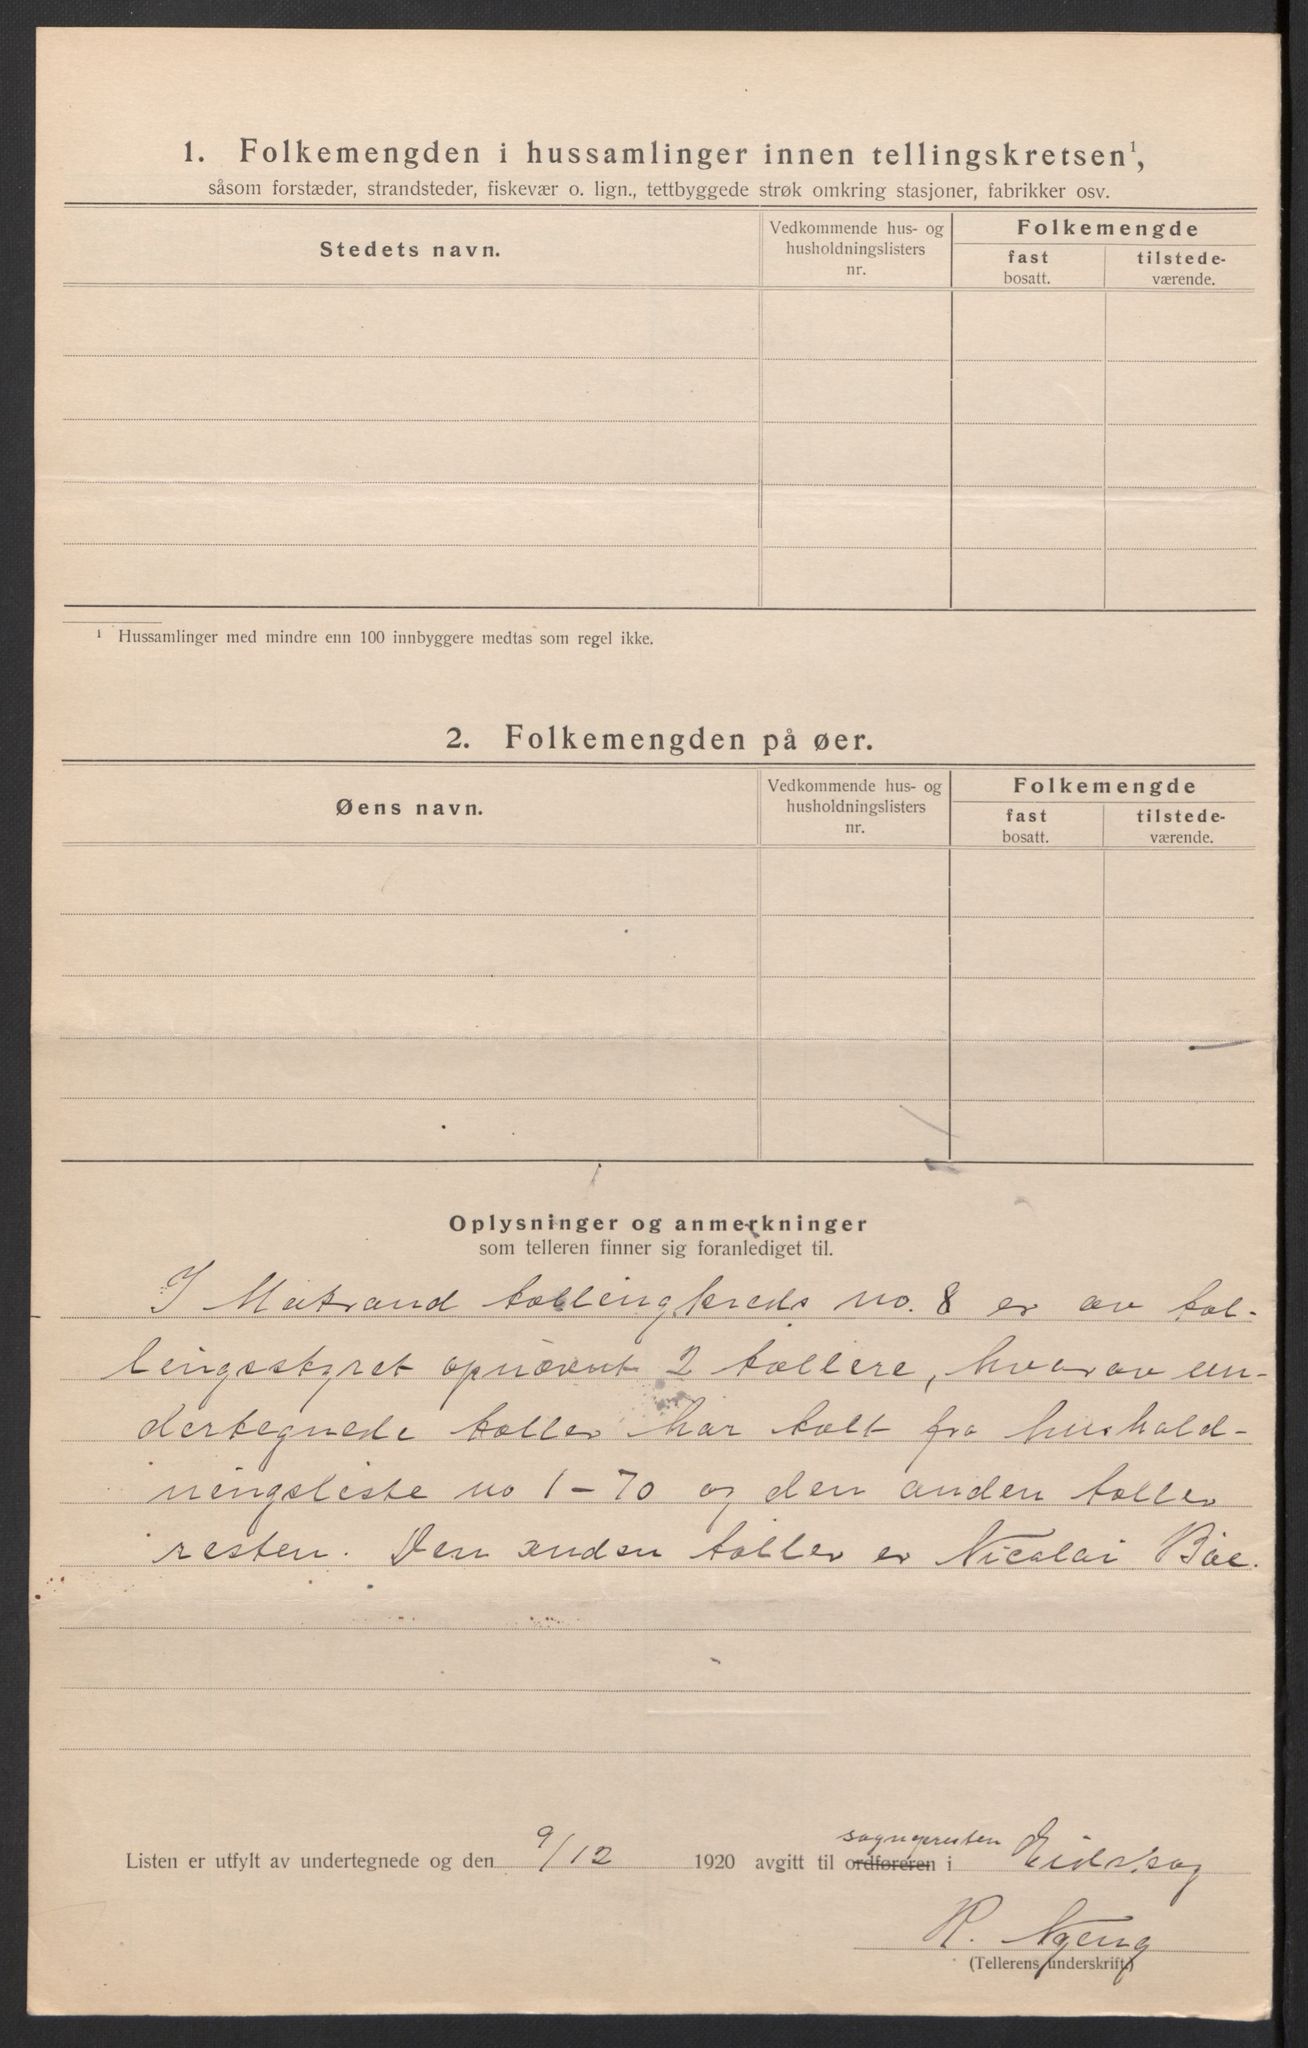 1. Folkemengden i hussamlinger innen tellingskretsen¹,
såsom forstæder, strandsteder, fiskevær o. lign., tettbyggede strøk omkring stasjoner, fabrikker osv.
Stedets navn.
Vedkommende hus- og
husholdningslisters
nr.
Folkemengde
fast
bosatt.
tilstede-
værende.
¹ Hussamlinger med mindre enn 100 innbyggere medtas som regel ikke.
2. Folkemengden på øer.
Øens navn.
Vedkommende hus- og
husholdningslisters
nr.
Folkemengde
fast
bosatt.
tilstede-
værende.
Oplysninger og anmerkninger
som telleren finner sig foranlediget til.
I Matrand tællingkreds no. 8 er av tæl-
lingsstyret opnævnt 2 tællere, hvorav un-
dertegnede tæller har tælt fra hushold-
ningsliste no 1-70 og den anden tæller
resten. Den anden tæller er Nicolai Båe.
sognepresten
Listen er utfylt av undertegnede og den 9/12 1920 avgitt til ordføreren i Eidskog
K. Nyeng
(Tellerens underskrift)